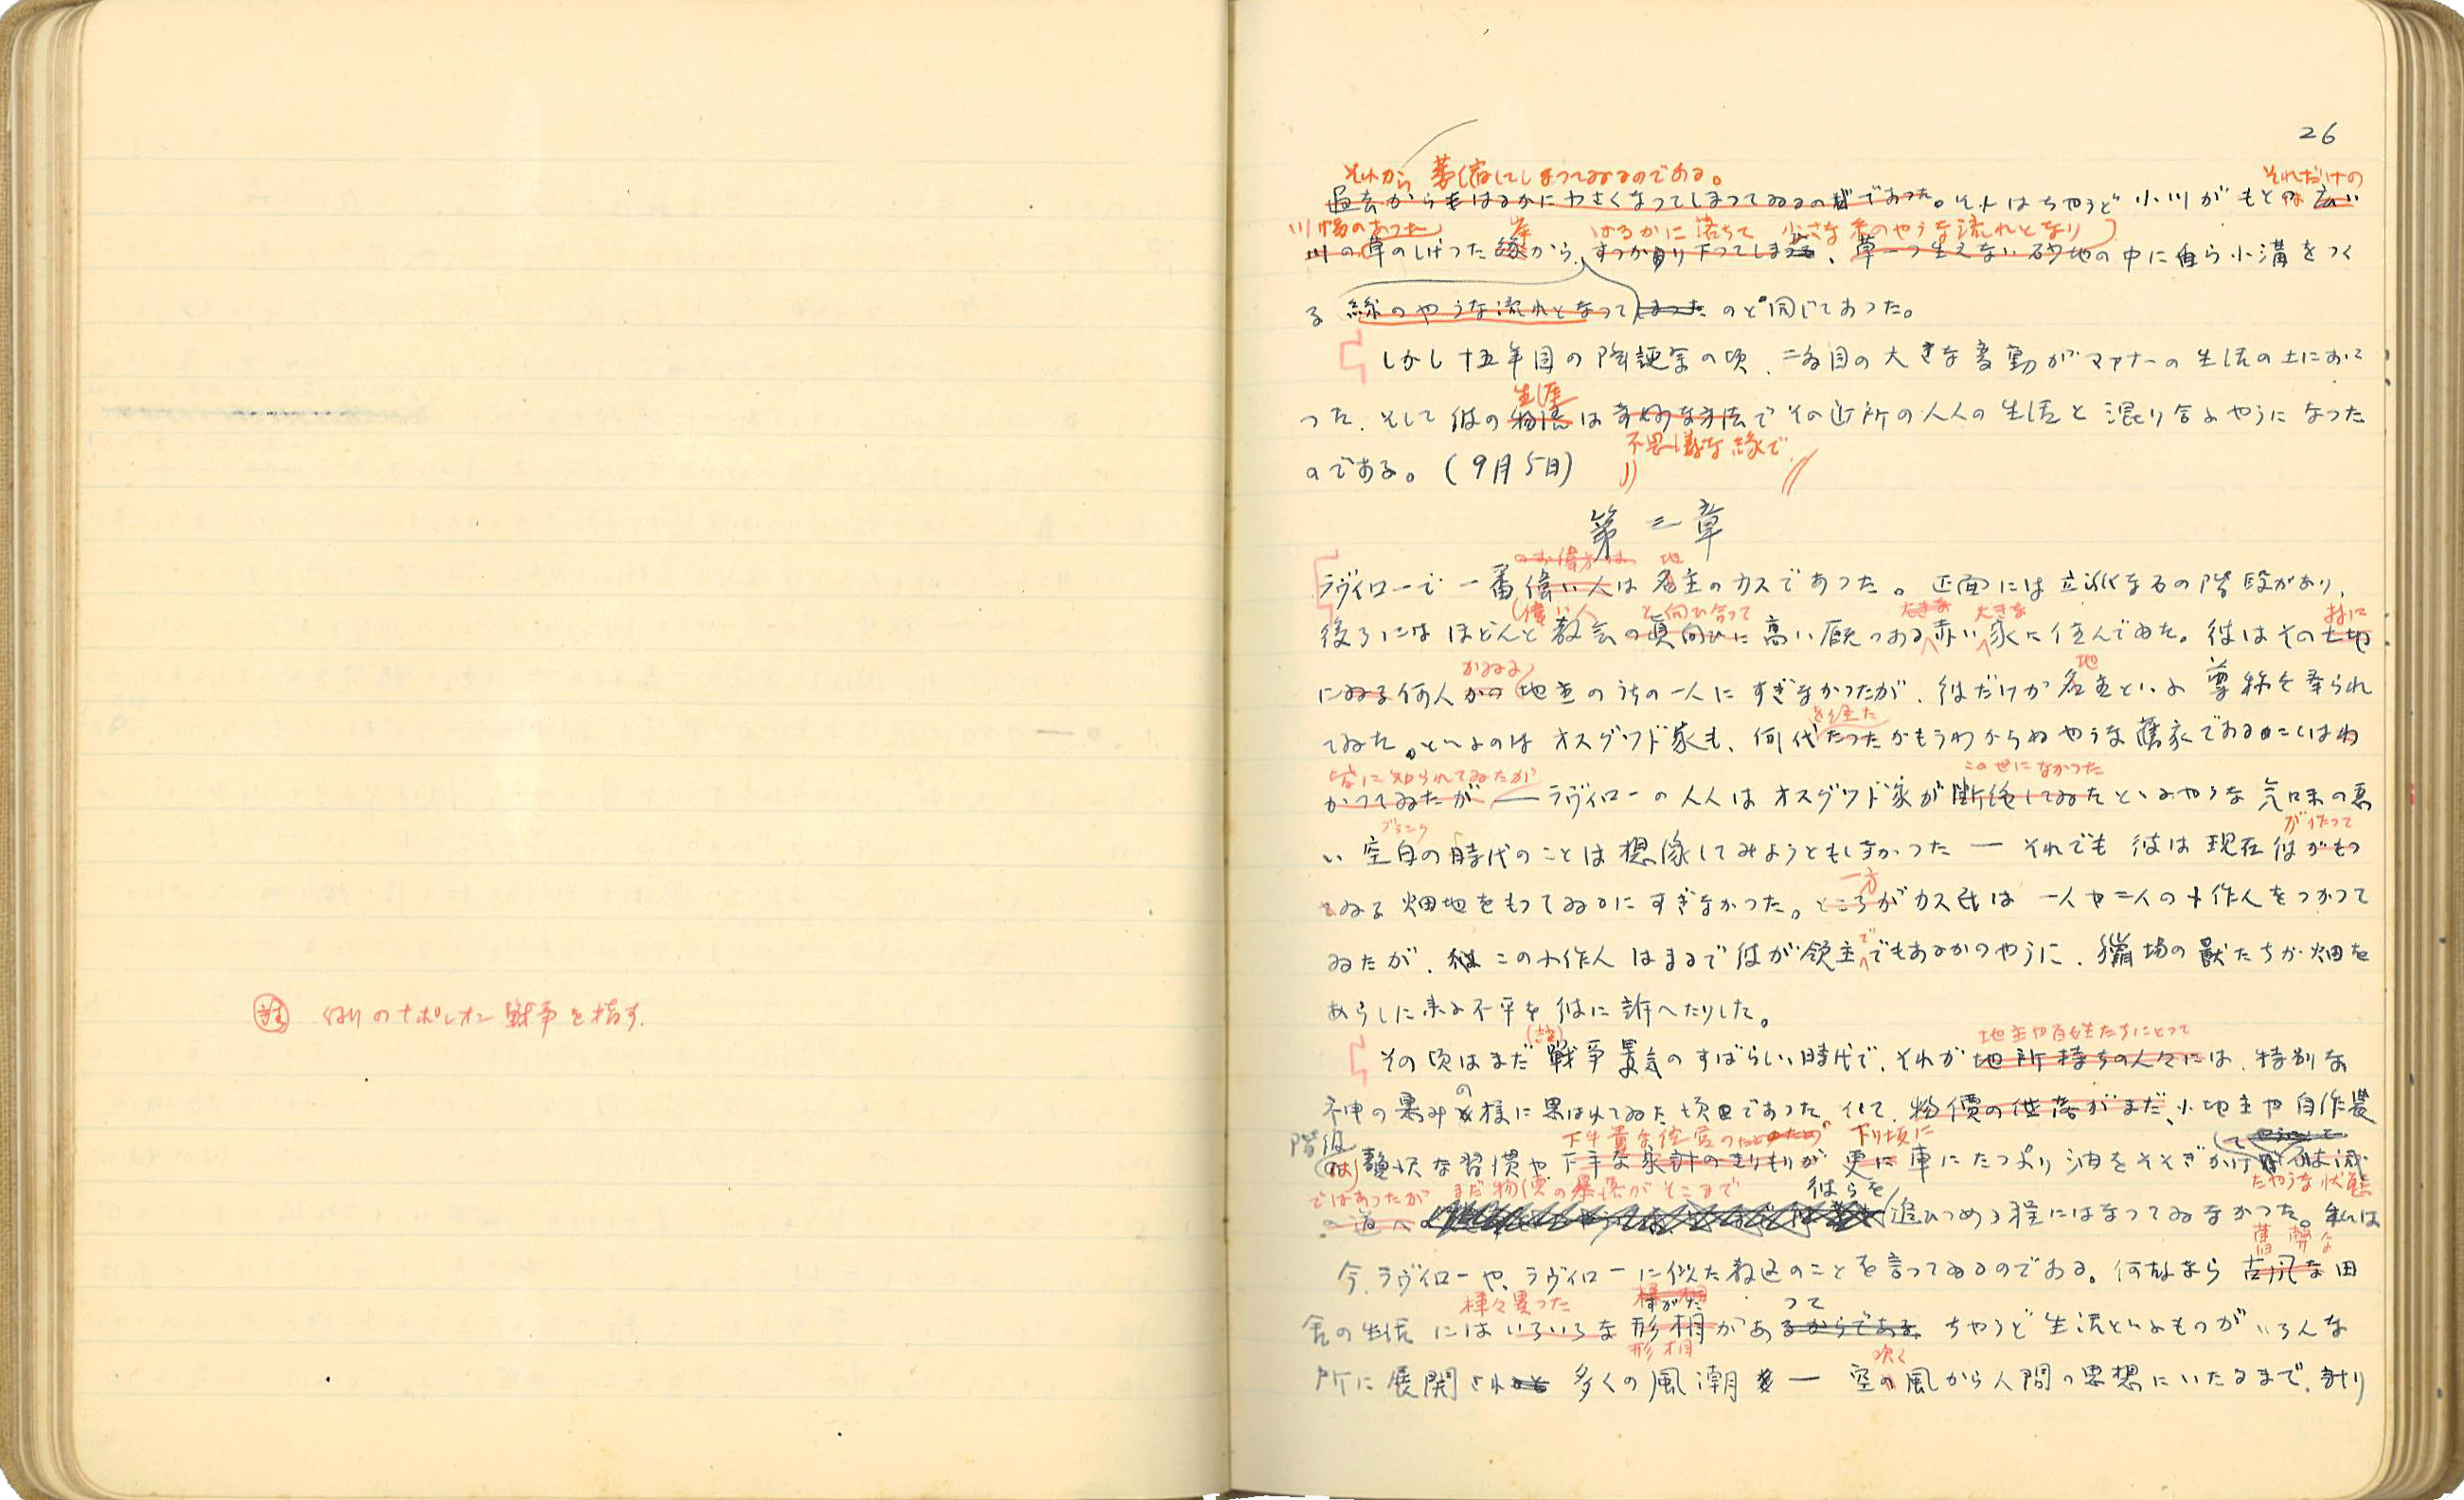 註 例のナポレオン戦争を指す.
26
それから 萎縮してしまつてゐるのである。 それだけの
過去からもはるかに小さくなつてしまつてゐるのであつた。それはちやうど小川がもとは広い
川幅のあつた 岸 はるかに落ちて 小さな糸のやうな流れとなり
川の草のしげつた縁から、すつかり下つてしまつて、草一つ生えない砂地の中に自ら小溝をつく
る 絲のやうな流れとなつてしまつたのと同じであつた。
しかし十五年目の降誕祭の頃、二番目の大きな変動がマアナーの生活の上におこ
生涯
つた、そして彼の物語は奇妙な方法でその近所の人人の生活と混り合ふやうになつた
不思議な縁で
のである。(9月5日)
第三章
のお偉方は 地
ラヴィローで一番偉い人は名主のカスであつた。正面には立派な石の階段があり、
(偉い人 と向ひ合つて 大きな 大きな 村に
後ろにはほどんと教会の真向ひに高い厩のある赤い家に住んでゐた。彼はその土地
かゐる 地
にゐる何人かの地主のうちの一人にすぎなかつたが、彼だけが名主といふ尊称を奉られ
を経た
てゐた。といふのはオスグッド家も、何代たつたかもうわからぬやうな舊家であることはわ
皆に知られてゐたが この世になかつた
かつてゐたが―ラヴィローの人人はオスグッド家が断絶してゐたといふやうな気味の悪
ブランク が作つて
い空白の時代のことは想像してみようともしなかつた―それでも彼は現在彼がもつ
一方
てゐる畑地をもつてゐるにすぎなかつた。ところがカス氏は一人や二人の小作人をつかつて
で
ゐたが、この小作人はまるで彼が領主でもあるかのやうに、猟場の獣たちが畑を
あらしに来る不平を彼に訴へたりした。
(註) 地主や百姓たちにとつて
その頃はまだ戦争景気のすばらしい時代で、それが地所持ちの人々には、特別な
の
神の恵み様に思はれてゐた頃であつた そして、物價の低落がまだ、小地主や自作農
階級 下り坂に
(は) な習慣や、下手な家計のきりもりが 更に車にたつぷり油をそそぎかけ
ではあつたが まだ物価の暴落がそこまで 彼らを たやうな状態
の道へ 追ひつめる程にはなつてゐなかつた。私は
舊弊な
今、ラヴィローや、ラヴィローに似た教区のことを言つてゐるのである。何故なら古風な田
様々異つた すがた つて
舎の生活にはいろいろな形相があるからである ちやうど生活といふものがいろんな
形相 吹く
所に展開され 多くの風潮―空の風から人間の思想にいたるまで、計り